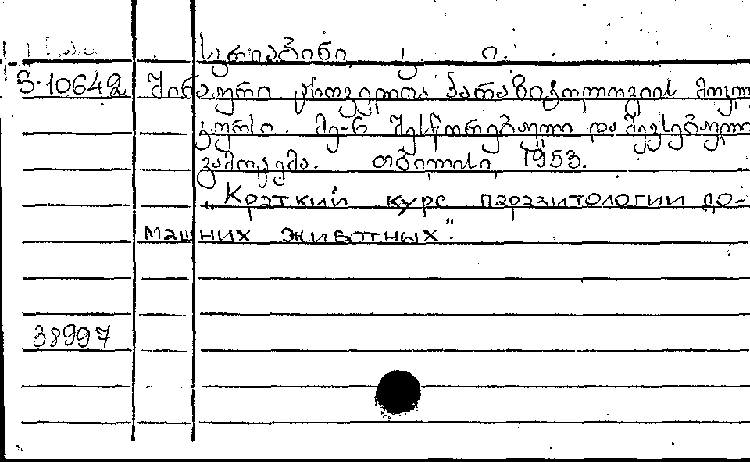 სკრიაბინი კ. ი.
5-10642 შინაური ცხოველთა პარაზიტოლოგიის მოკლ
კურსი. მე-6 შესწორებული და შევსებული
გამოცემა. თბილისი, 1953.
„Краткий курс паразитологии до-
машних животных".
38997